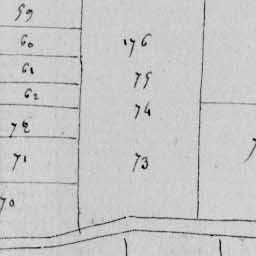 59
60
61
62
72
71
70
76
75
74
73